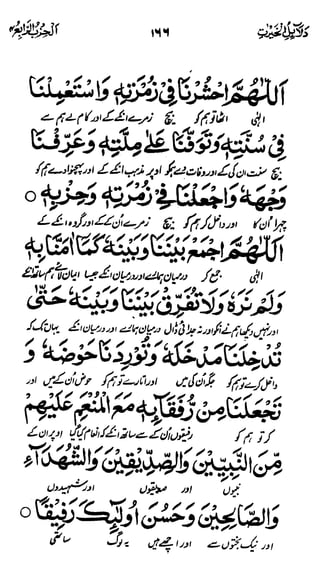 دلائل الخیرات ١٦٦ الحزب الرابع
اَللّٰهُمَّ احْشُرْنَا فِيْ زُمْرَتِهٖ وَاسْتَعْمِلْنَا
الہٰی اٹھا تو ہم کو بیچ زمرے انکے کے اور کام لے ہم سے
فِيْ سُنَّتِهٖ وَتَوَفَّنَا عَلٰى مِلَّتِهٖ وَعَرِّفْنَا
بیچ سنت ان کی کے اور وفات دے ہمکو اوپر مذہب انکے کے اور پہچنوا دے ہم کو
وَجْهَهٗ وَاجْعَلْنَا فِيْ زُمْرَتِهٖ وَحِزْبِهٖ ○
چہرا ان کا اور داخل کر ہم کو بیچ زمرے اُن کے کے اور گروہ انکے کے
اَللّٰهُمَّ اجْمَعْ بَيْنَنَا وَبَيْنَهٗ كَمَا اٰمَنَّا بِهٖ
الہٰی جمع کر درمیان ہمارے اور درمیان انکے جیسا ایمان لائے ہم ساتھ انکے
وَلَمْ نَرَهٗ وَلَا تُفَرِّقْ بَيْنَنَا وَبَيْنَهٗ حَتّٰى
اور نہیں دیکھا ہم نے انکو اور نہ جدائی ڈال درمیان ہمارے اور درمیان انکے یہاں تک کہ
تُدْخِلَنَا مَدْخَلَهٗ وَتُوْرِدَنَا حَوْضَهٗ وَ
داخل کرے تو ہم کو جگہ اُن کی میں اور اتارے تو ہم کو حوض اُن کے میں اور
تَجْعَلَنَا مِنْ رُّفَقَآئِهٖ مَعَ الْمُنْعَمِ عَلَيْهِمْ
کرے تو ہم کو رفیقوں اُن کے سے ساتھ انکے کہ انعام کیا گیا اوپر ان کے
مِّنَ النَّبِيِّيْنَ وَالصِّدِّيْقِيْنَ وَالشُّهَدَآءِ
نبیوں اور صدیقوں اور شہیدوں
وَالصَّالِحِيْنَ وَحَسُنَ اُولٰٓئِكَ رَفِيْقًا ○
اور نیک بختوں سے اور اچھے ہیں یہ لوگ ساتھی